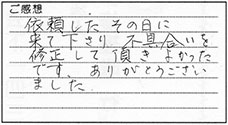 ご感想
依頼したその日に
来て下さり、不具合いを
修正して頂きよかった
です。ありがとうござい
ました.